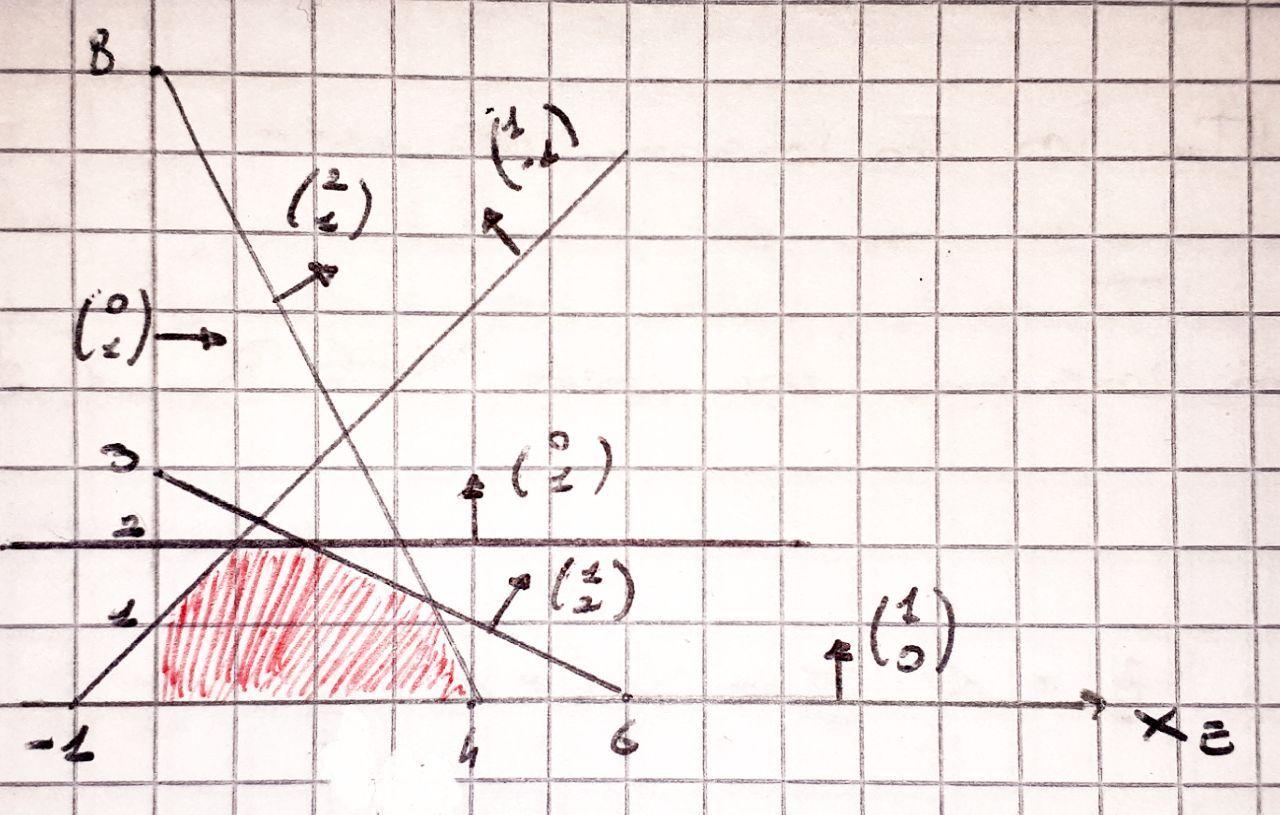 8
(1
-1)
(2
1)
(0
1)
3
(0
1)
2
(1
2)
1
(1
0)
-1
4
6
X E